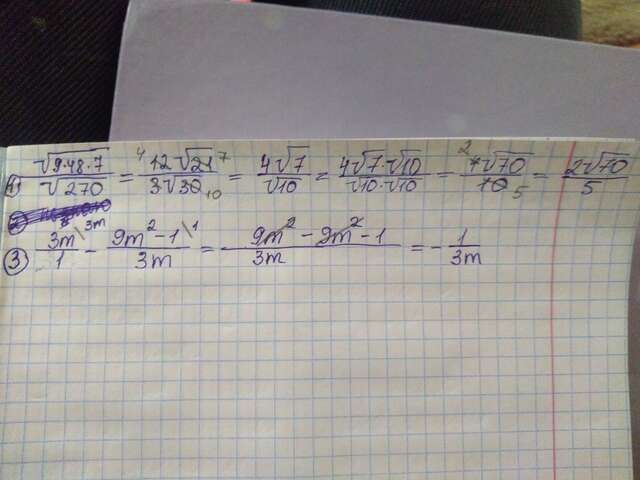 1) √9·48·7/√270 = ⁴12√21⁷/3√30₁₀ = 4√7/√10 = 4√7·√10/√10·√10 = ²4√70/10₅ = 2√70/5
2)
3) 3m\³ᵐ/1 - 9m²-1\¹/3m = 9m² - 9m² - 1/3m = - 1/3m